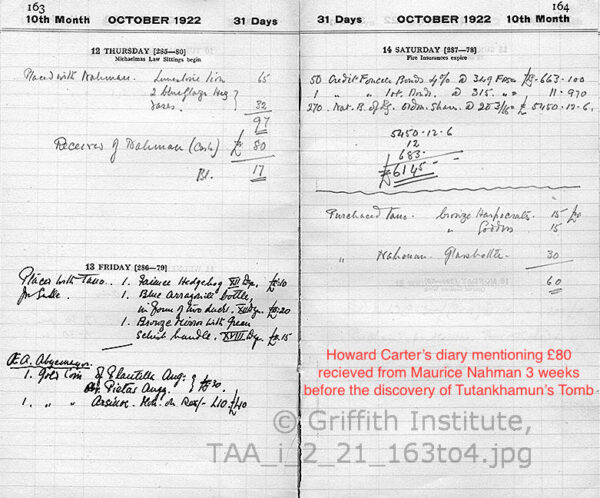 163
10th Month OCTOBER 1922 31 Days
12 THURSDAY [285—80]
Michaelmas Law Sittings begin
Placed with Nahman. Limestone Lion 65
2 blue glaze
vases. 32
97
Received of Nahman (Cash) £ 80
Bl. 17
13 FRIDAY [286—79]
Places with Tano. 1. Faience Hedgehog XII Dyn. £ 10
for Sale. 1. Blue Arragonite bottle,
in form of two ducks. £ 20
1. Bronze Mirror with Green
handle. XVIII Dyn. £ 15
1. Gold Coin of Plautilla Aug:
Pietas Augg } £ 30.
1. " " Arsinoe. £40
164
31 Days OCTOBER 1922 10th Month
14 SATURDAY [287—78]
Fire Insurances expire
50 Credit Foncier Bonds 4% @ 349 663.100
1 " " 1st. Bonds. @ 315. " = 11.970
270 Nat. B. of Eg. Ordin. Shares @ £ 5450-12-6
5450-12-6
12
683
£ 6145
Purchased Tano. bronze Harpocrates. 15
" Goddess 15
" Nahman. Glass bottle 30
60
Howard Carter's diary mentioning £80
recieved from Maurice Nahman 3 weeks
before the discovery of Tutankhamun's Tomb
© Griffith Institute,
TAA_i_2_21_163to4.jpg